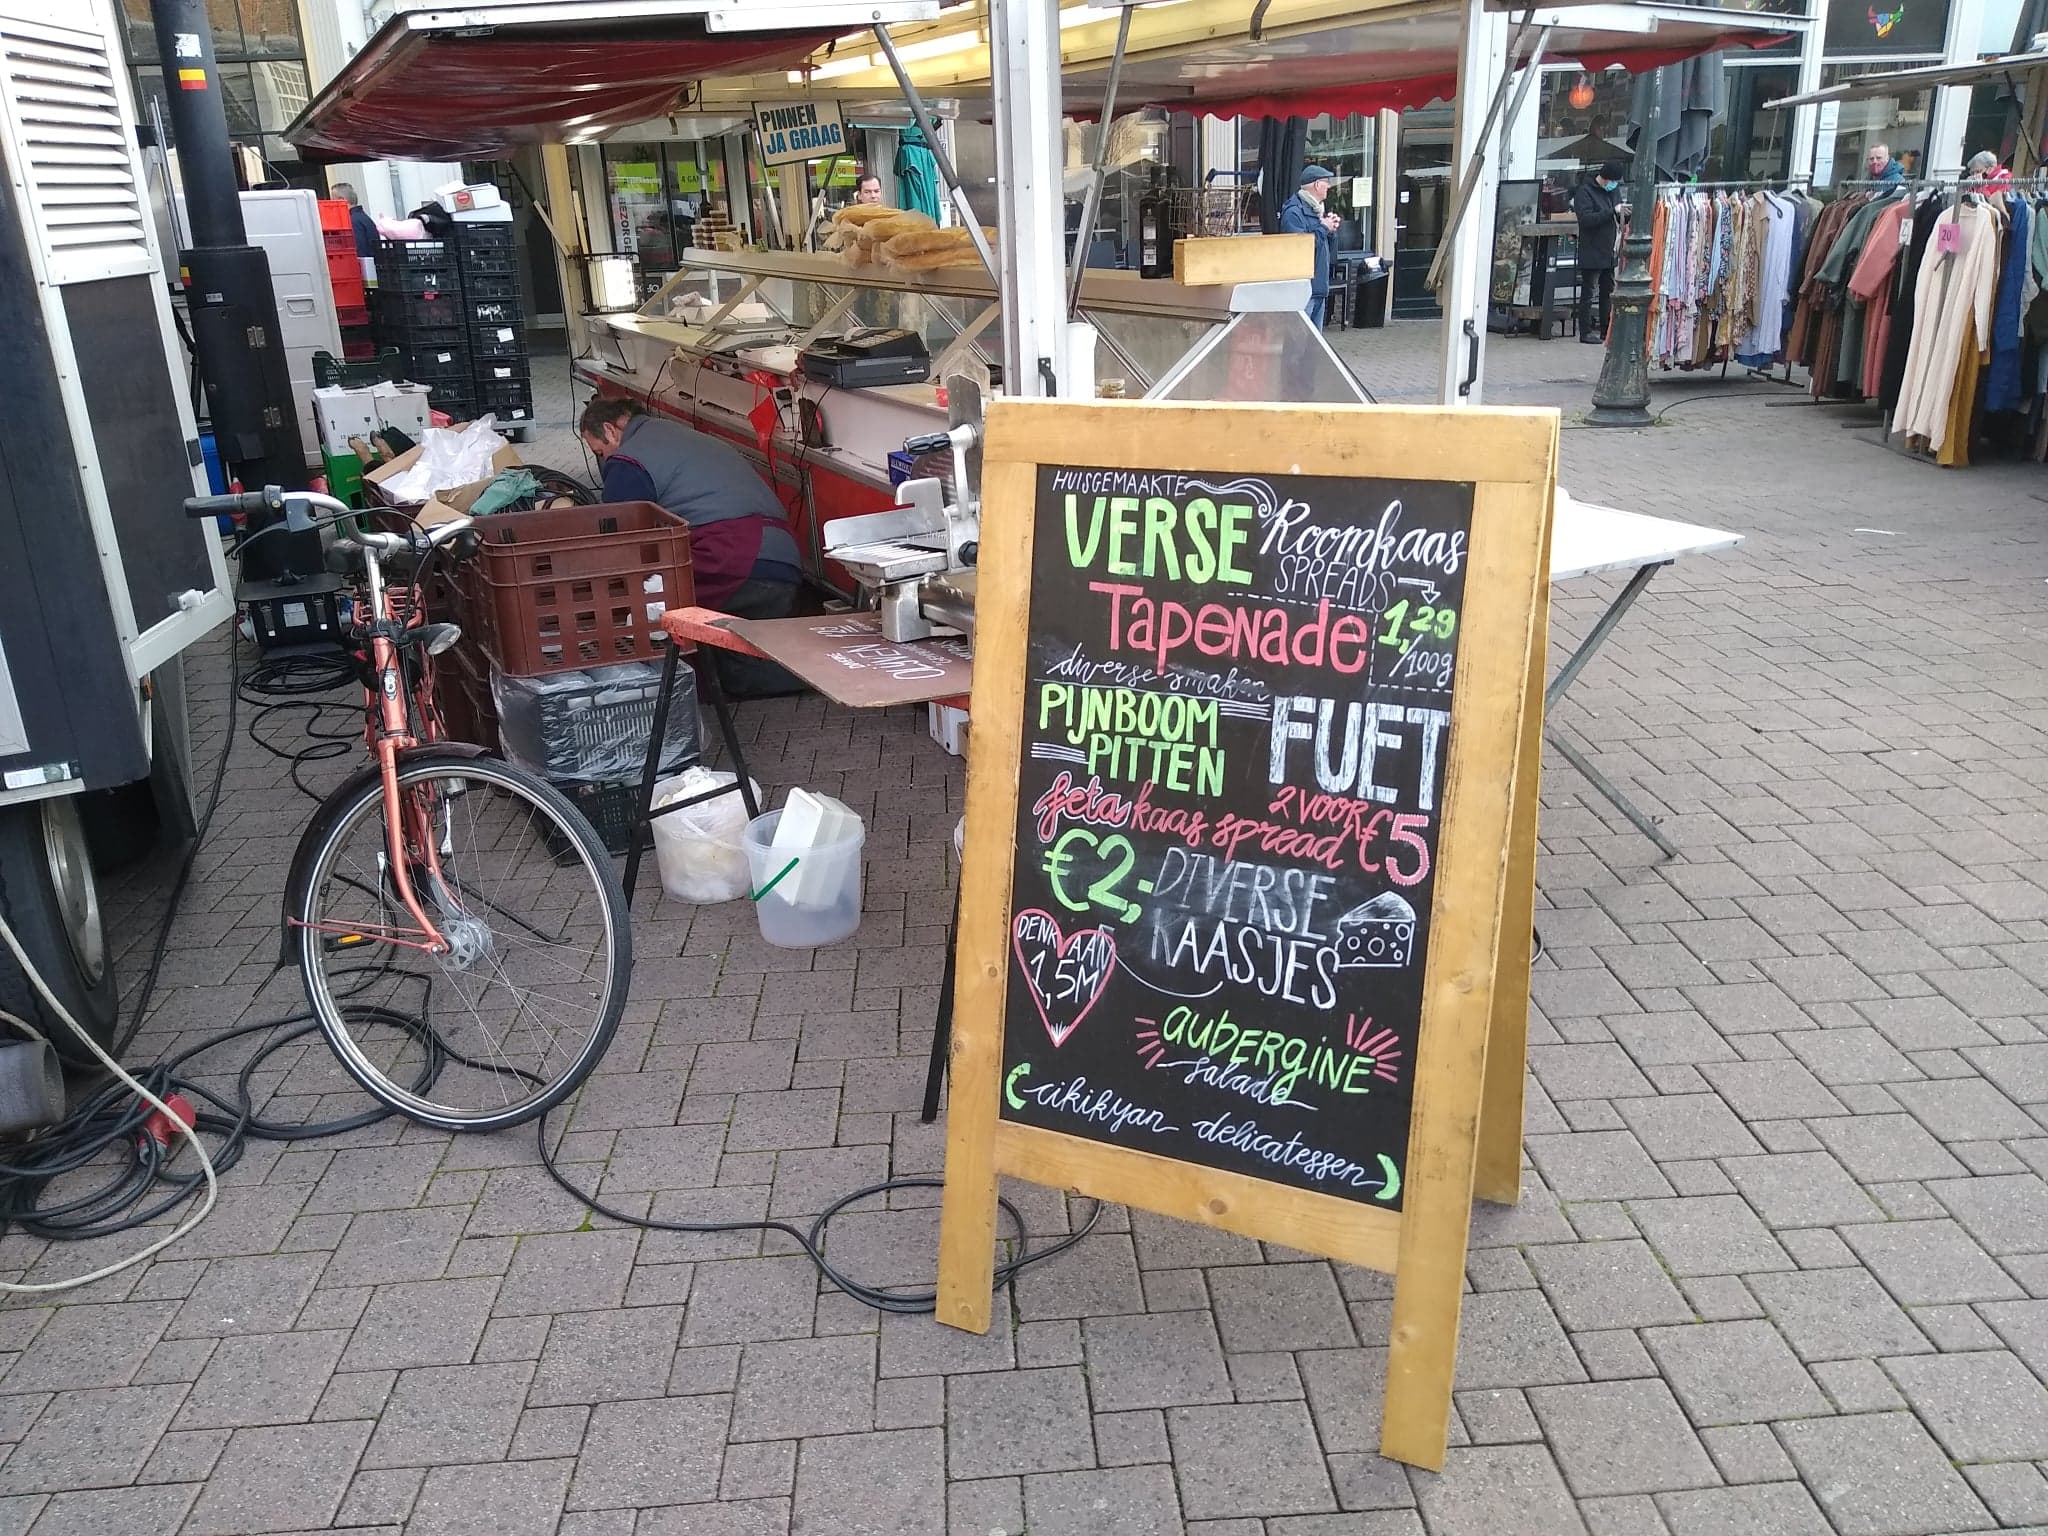 PINNEN
JA GRAAG
HUISGEMAAKTE
VERSE
Roomkaas
SPREADS
1,29
/100g
Tapenade
diverse smaken
PIJNBOOM
PITTEN
FUET
2 VOOR €5
feta kaas spread
€2,-
DIVERSE
KAASJES
DENK AAN
1,5M
AUBERGINE
Salade
Cikikyan delicatessen
OLIJVEN
20